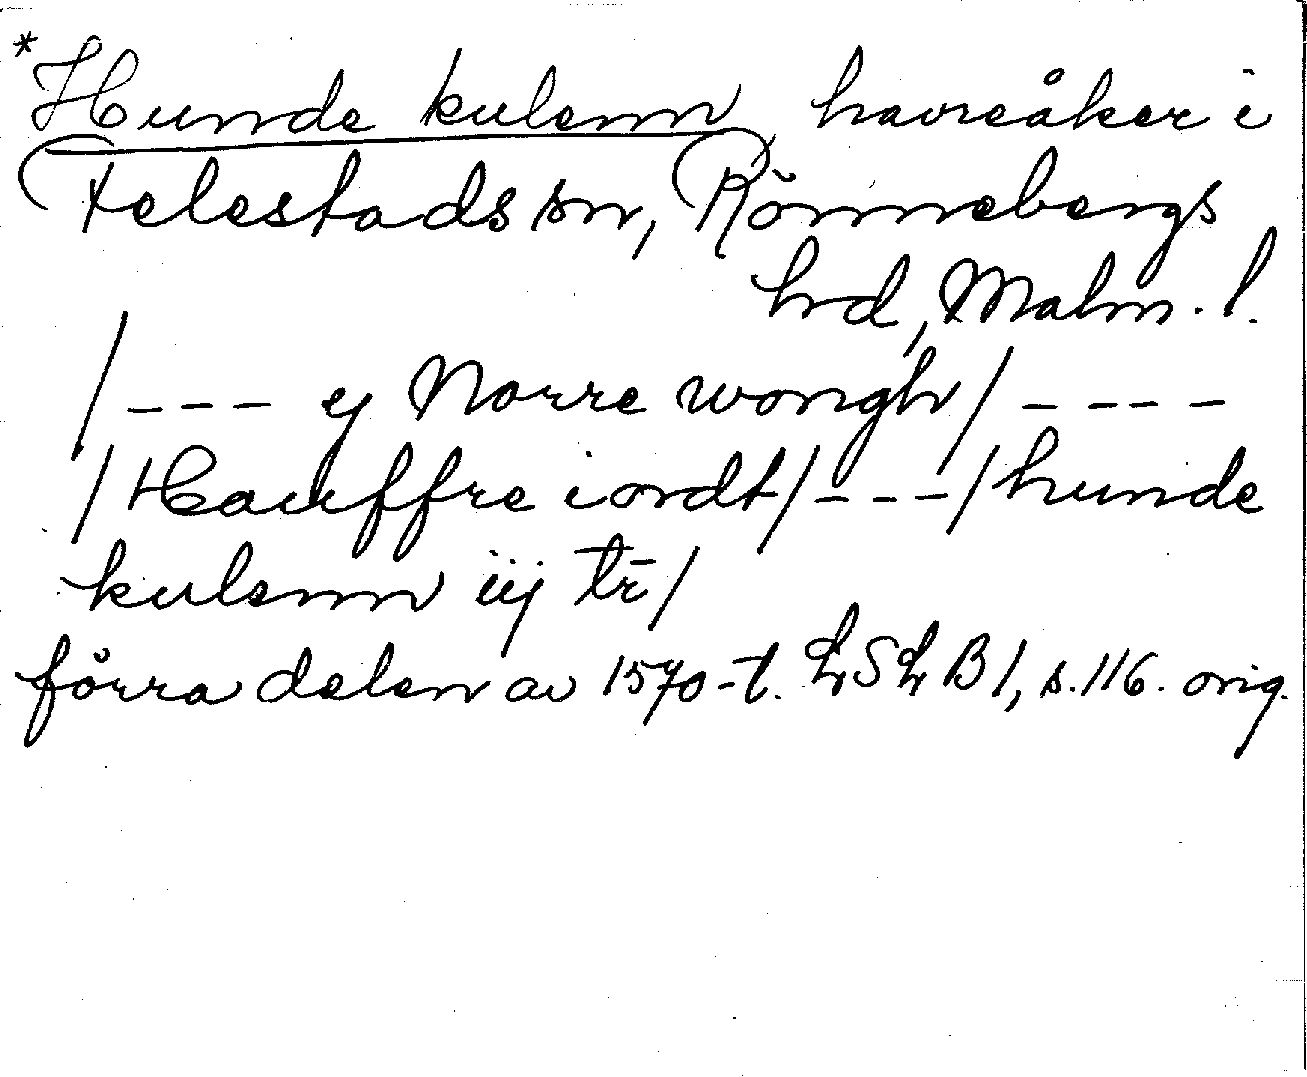 *Hunde kulenn, havreåker i
Felestads sn, Rönnebergs
hrd, Malm. l.
/--- ej Norre wongh/ ----
/Hauffre iordt/---/hunde
kulenn iij tr̄/
förra delen av 1570-t. LSLB1, s.116. orig.